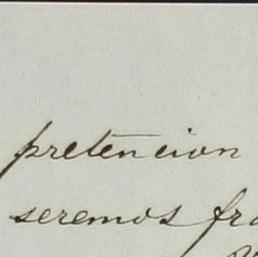 pretencion
seremos